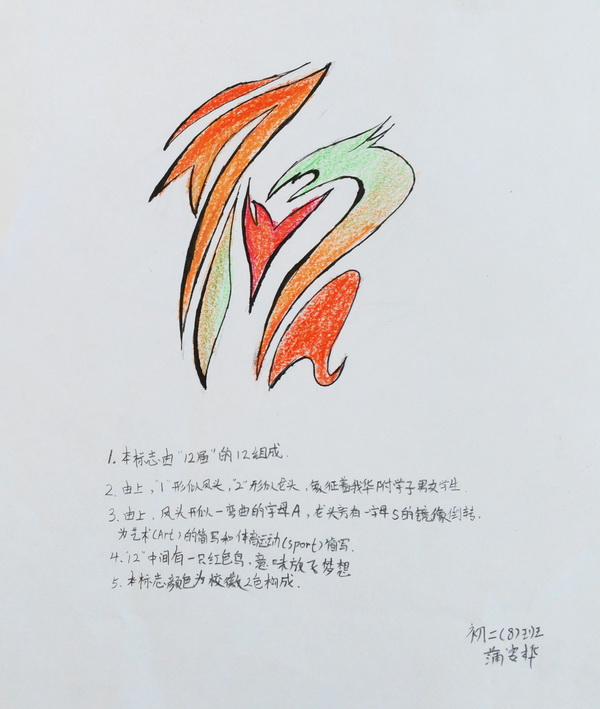 1. 本标志由"12届"的12组成.
2. 由上,"1"形似凤头,"2"形似龙头,象征着我华附学子男女学生.
3. 由上,凤头形似一弯曲的字母A,龙头旁有一字母S的镜像倒转.
为艺术(Art)的简写和体育运动(sport)简写.
4. "12"中间有一只红色鸟,意味放飞梦想
5. 本标志颜色为校徽2色构成.
初二(8)班
蒲姿桦